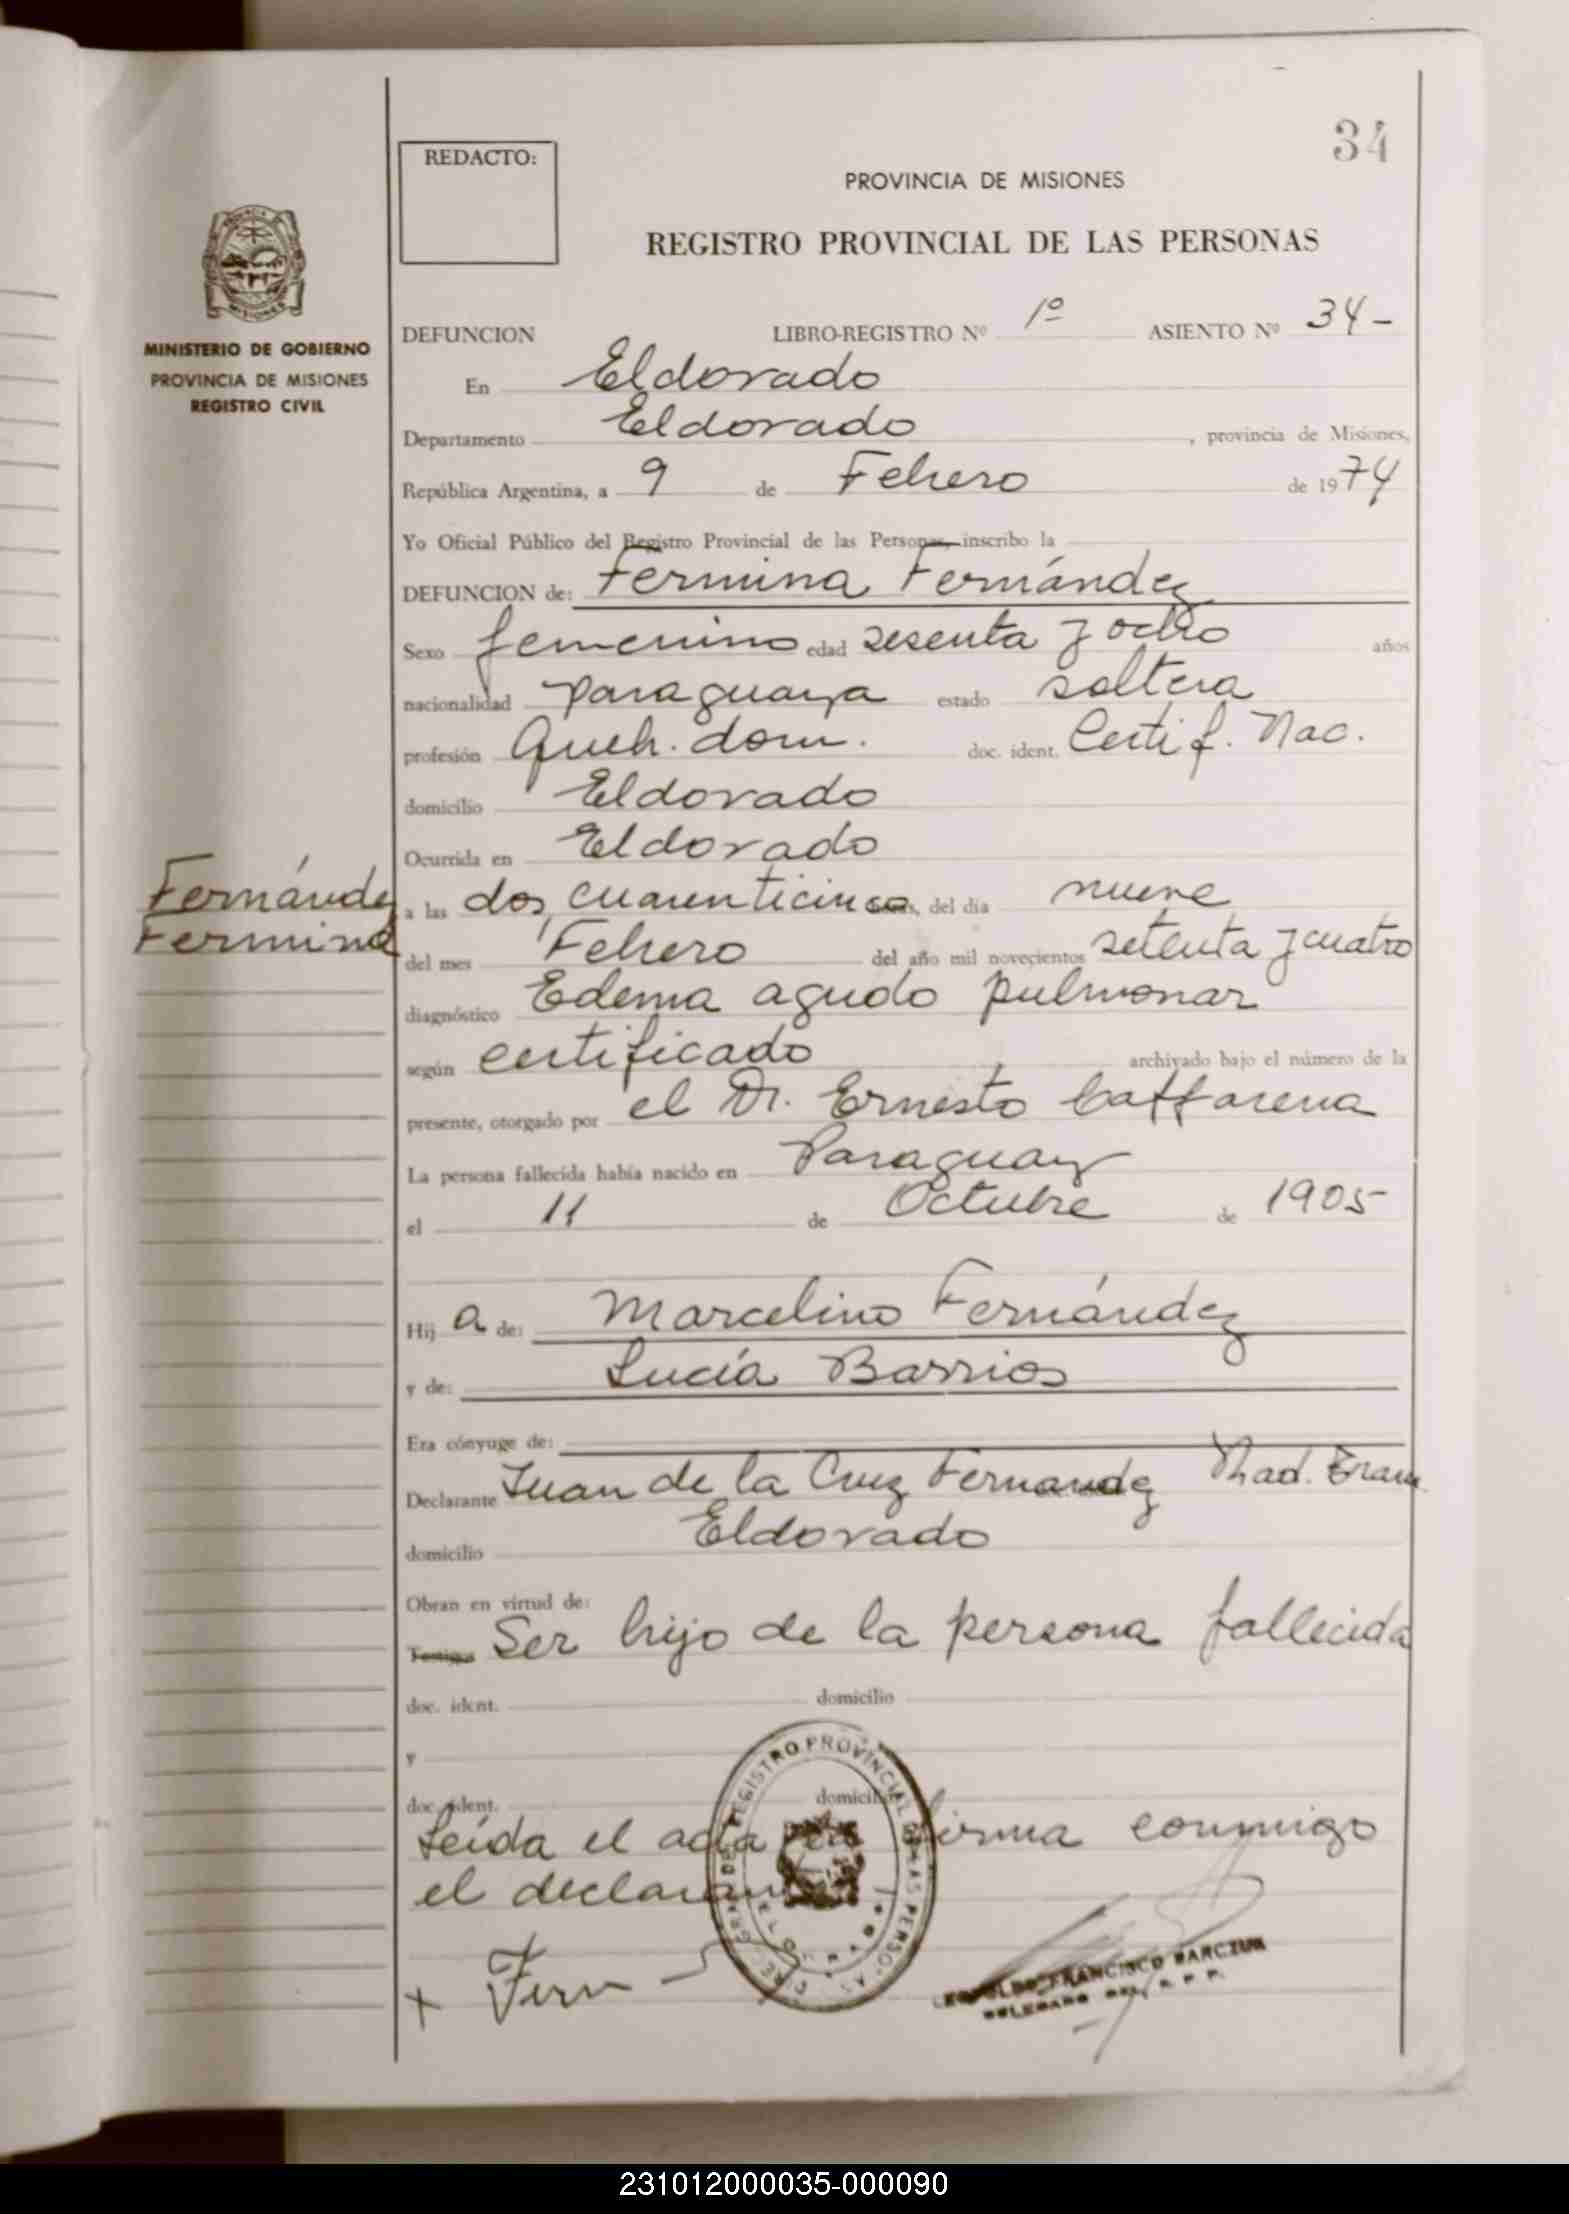 34
REDACTO:
PROVINCIA DE MISIONES
REGISTRO PROVINCIAL DE LAS PERSONAS
MINISTERIO DE GOBIERNO
PROVINCIA DE MISIONES
REGISTRO CIVIL
DEFUNCION LIBRO-REGISTRO Nº 1º ASIENTO Nº 34-
En Eldorado
Departamento Eldorado, provincia de Misiones,
República Argentina, a 9 de Febrero de 1974
Yo Oficial Público del Registro Provincial de las Personas, inscribo la
DEFUNCION de: Fermina Fernández
Sexo femenino edad sesenta y ocho años
nacionalidad paraguaya estado soltera
profesión Queh. dom. doc. ident. Certif. Nac.
domicilio Eldorado
Ocurrida en Eldorado
Fernández
Fermina
a las dos, cuarenticinco horas, del día nueve
del mes Febrero del año mil novecientos setenta y cuatro
diagnóstico Edema agudo pulmonar
según certificado archivado bajo el número de la
presente, otorgado por el Dr. Ernesto Caffarena
La persona fallecida había nacido en Paraguay
el 11 de Octubre de 1905
Hij a de: Marcelino Fernández
y de: Lucía Barrios
Era cónyuge de:
Declarante Juan de la Cruz Fernandez
domicilio Eldorado
Obran en virtud de:
Testigos Ser hijo de la persona fallecida
doc. ident. domicilio
y
doc. ident. domicilio
Leída el acta firma conmigo
el declarante
+ Fern
FRANCISCO
DELEGADO DEL R. P. P.
231012000035-000090